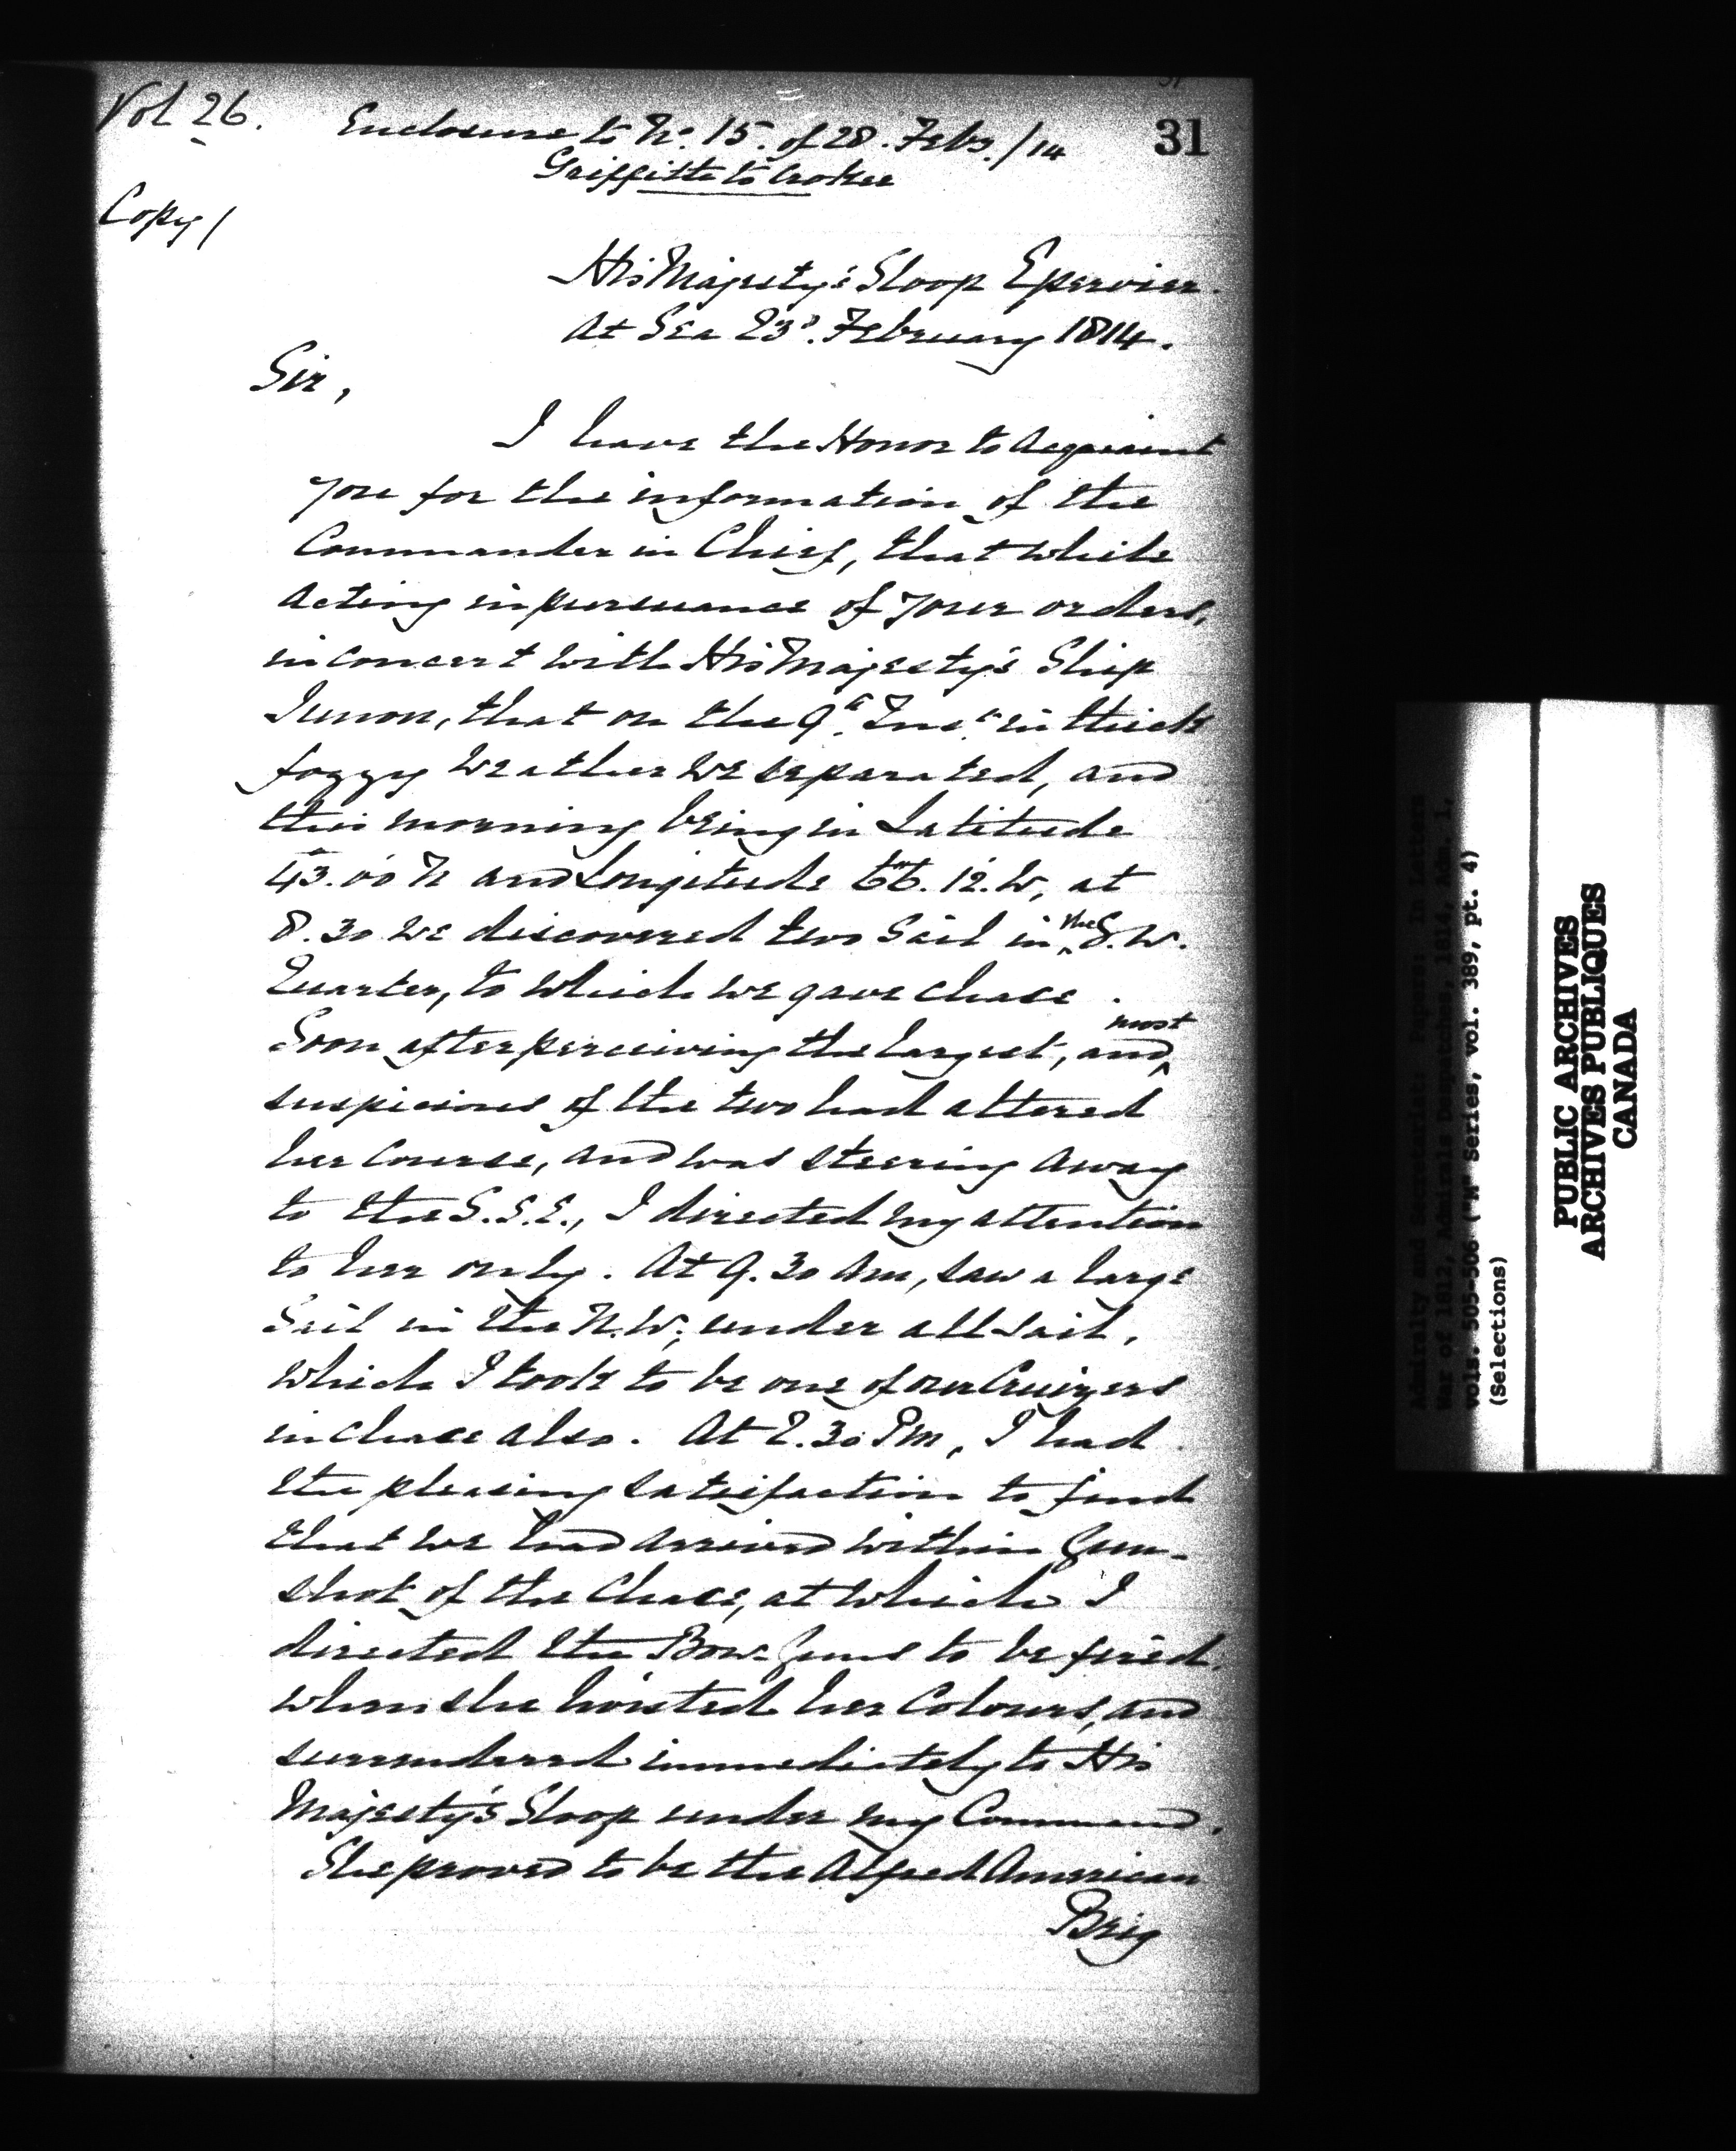 Vol 26.
31
Enclosure to No. 15. of 28. Feby./14
Griffith to Croker
Copy/
His Majesty's Sloop Epervier.
At Sea 23d. February 1814.
Sir,
I have the Honor to Acquaint
you for the information of the
Commander in Chief, that while
Acting in pursuance of your orders,
in concert with His Majesty's Ship
Junon, that on the 9th. Inst. in thick
foggy weather we separated, and
this morning being in Latitude
43.00 N and Longitude 66.12.W, at
8.30 we discovered two Sail in the S.W.
Quarter, to which we gave chase.
Soon after perceiving the largest, and most
suspicious of the two had altered
her Course, and was steering away
to the S.S.E., I directed my attention
to her only. At 9.30 Am, saw a large
Sail in the N.W; under all sail,
which I took to be one of our Cruizers
in Chace also. At 2.30 Pm, I had
the pleasing satisfaction to find
that we had arrived within Gun-
shot of the Chace, at which I
directed the Bow Guns to be fired.
when she hoisted her Colours, and
surrendered immediately to His
Majesty's Sloop under my Command.
She proved to be the Alfred American
Brig
Admiralty and Secretariat: Papers: In Letters
War of 1812, Admirals Despatches, 1814, Adm. 1,
vols. 505-506 ("M" Series, vol. 389, pt. 4)
(Selections)
PUBLIC ARCHIVES
ARCHIVES PUBLIQUES
CANADA